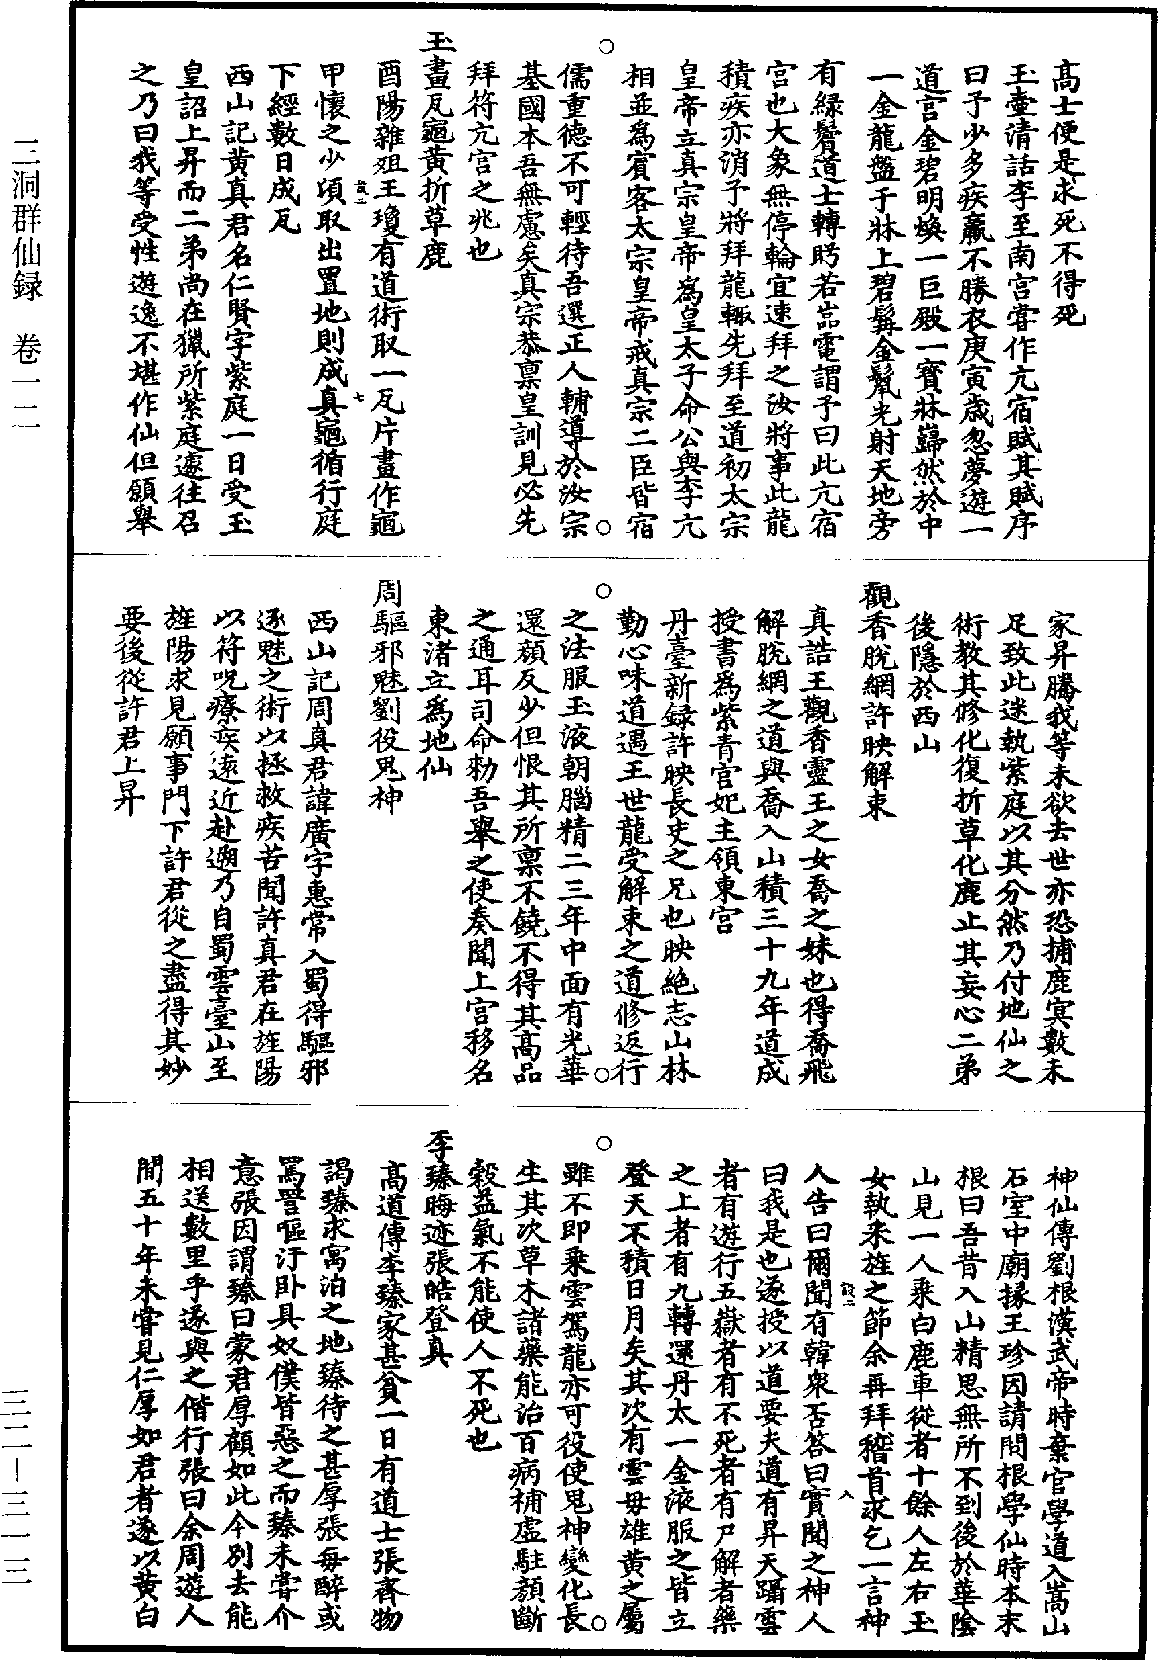 高士便是求死不得死
玉壺清話李至南宮嘗作亢宿賦其賦序
曰予少多疾羸不勝衣庚寅歲忽夢遊一
道宮金碧明煥一巨殿一寶牀巋然於中
一金龍盤于牀上碧髯金鬣光射天地旁
有綠鬢道士轉眄若嵓電謂予曰此亢宿
宮也大象無停輪宜速拜之汝將事此龍
積疾亦消予將拜龍輙先拜至道初太宗
皇帝立真宗皇帝為皇太子命公與李亢
相並為賓客太宗皇帝戒真宗二臣皆宿
儒重德不可輕待吾選正人輔導於汝宗
基國本吾無慮矣真宗恭禀皇訓見必先
拜符亢宮之兆也
王畫瓦龜黃折草鹿
酉陽雜俎王瓊有道術取一瓦片畫作龜
甲懷之少頃取出置地則成真龜循行庭
下經數日成瓦
西山記黃真君名仁賢字紫庭一日受玉
皇詔上昇而二弟尚在獵所紫庭遽往召
之乃曰我等受性遊逸不堪作仙但願舉
家昇騰我等未欲去世亦恐捕鹿冥數未
足致此迷執紫庭以其分然乃付地仙之
術教其修化復折草化鹿止其妄心二弟
後隱於西山
觀香脫網許映解束
真誥王觀香靈王之女喬之妹也得喬飛
解脫網之道與喬入山積三十九年道成
授書為紫青宮妃主領東宮
丹臺新録許映長史之兄也映絶志山林
勤心味道遇王世龍受解束之道修返行
之法服玉液朝腦精二三年中面有光華
還顏反少但恨其所禀不饒不得其高品
之通耳司命勑吾舉之使奏聞上宮移名
東渚立為地仙
周驅邪魅劉役鬼神
西山記周真君諱廣字惠常入蜀得驅邪
逐魅之術以拯救疾苦聞許真君在旌陽
以符呪療疾遠近赴遡乃自蜀雲臺山至
旌陽求見願事門下許君從之盡得其妙
要後從許君上昇
神仙傳劉根漢武帝時棄官學道入嵩山
石室中廟掾王珍因請問根學仙時本末
根曰吾昔入山精思無所不到後於華陰
山見一人乘白鹿車從者十餘人左右玉
女執釆旌之節余再拜稽首求乞一言神
人告曰爾聞有韓衆否答曰實聞之神人
曰我是也遂授以道要夫道有昇天躡雲
者有遊行五嶽者有不死者有尸解者藥
之上者有九轉還丹太一金液服之皆立
登天不積日月矣其次有雲母雄黃之屬
雖不即乘雲駕龍亦可役使鬼神變化長
生其次草木諸藥能治百病補虛駐顏斷
穀益氣不能使人不死也
李臻晦迹張皓登真
高道傳李臻家甚貧一日有道士張齊物
謁臻求寓泊之地臻待之甚厚張每醉或
罵詈嘔汙卧具奴僕皆惡之而臻未嘗介
意張因謂臻曰蒙君厚顧如此今別去能
相送數里乎遂與之偕行張曰余周遊人
間五十年未嘗見仁厚如君者遂以黃白
三洞群仙録　卷一二
三二—三一三